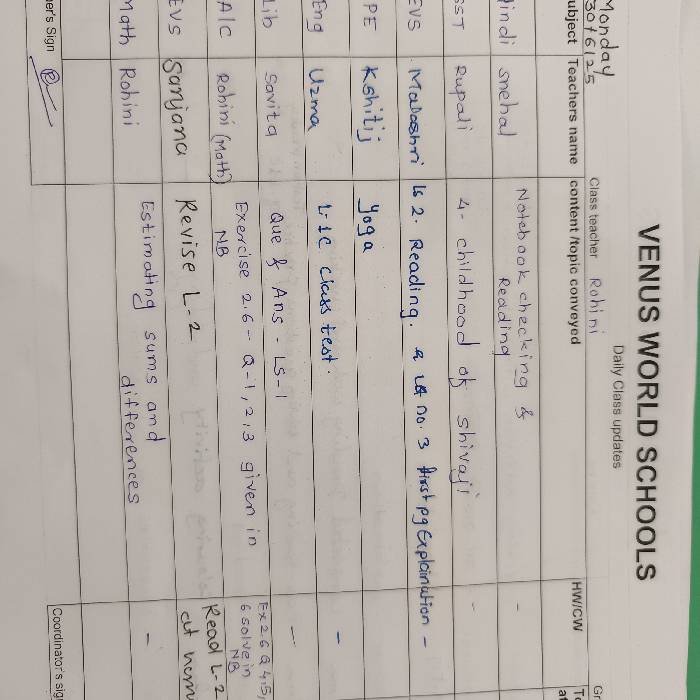 VENUS WORLD SCHOOLS
Daily Class updates
Monday
30/6/25 Class teacher Rohini Gr
ubject Teachers name content /topic conveyed HW/CW
indi snehal Notebook checking &
Reading -
SST Rupali 4- childhood of shivaji -
EVS Malashri Ls 2. Reading. & L4 no. 3 first pg Explaination -
PE Kshitij Yoga
Eng Uzma L-1C class test. -
Lib Savita Que & Ans - LS-1 -
A/C Rohini (Math) Exercise 2.6 - Q-1,2,3 given in
NB Ex 2.6 Q 4,5,
6 solve in
NB
EVS Sanjana Revise L-2 Read L-2
Math Rohini Estimating sums and
differences -
her's Sign Coordinator's sig